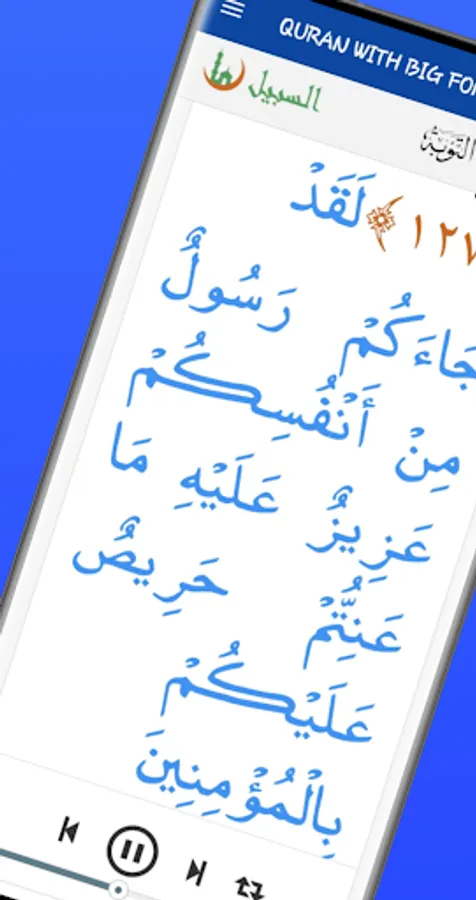 QURAN WITH BIG FO
السبيل
التوبة
١٢٧ ﴿ لَقَدْ
جَاءَكُمْ رَسُولٌ
مِنْ أَنْفُسِكُمْ
عَزِيزٌ عَلَيْهِ مَا
عَنِتُّمْ حَرِيصٌ
عَلَيْكُمْ
بِالْمُؤْمِنِينَ